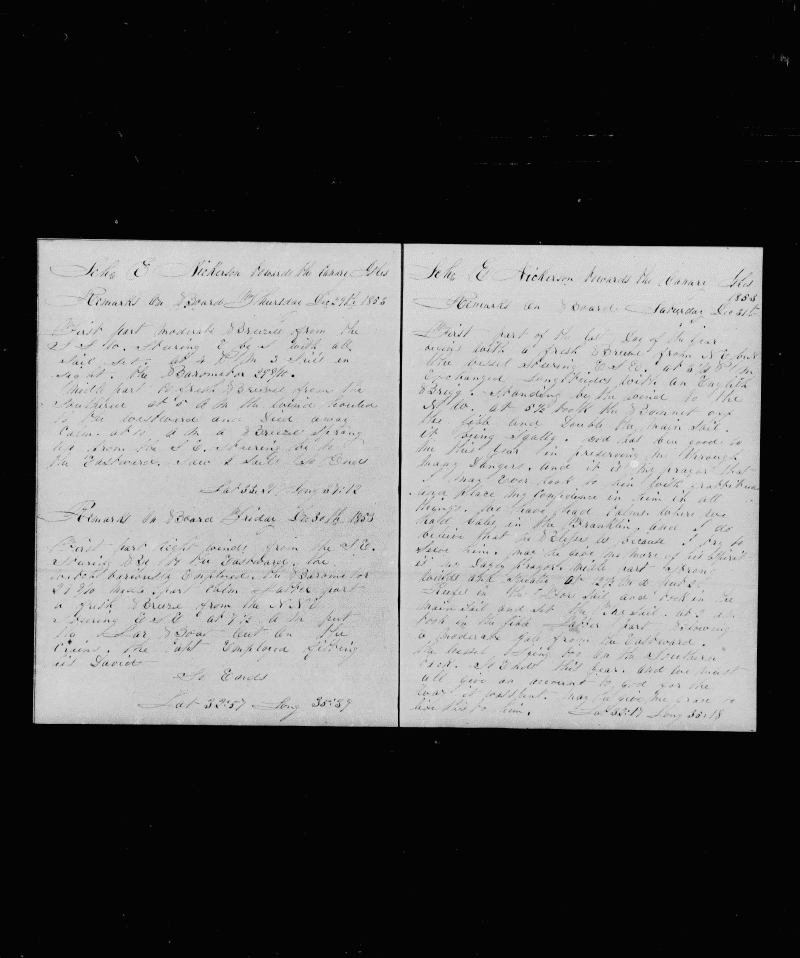 Schr E Nickerson towards the Canare Isles
Remarks On Board Thursday Dec 29th 1853
First part moderate Breeze from the
S S W. Steering E by S with all
Sail Set. at 4 P M 3 Sails in
Sight. the Barometer
Middle part fresh Breeze from the
Southward at 5 A M the wind hauled
to the westward and Died away
Calm. at 10 A M a Breeze Spring
up from the S E. Steering
the Eastward. Saw 2 Sails So Ends
Lat 33 Long 37:12
Remarks On Board Friday Dec 30th 1853
First part light winds from the S E.
Steering to the Eastward. the
watch variously Employed. the Barometer
part Calm Latter part
a fresh Breeze from the N.N.E
Steering E S E at 7½ A M put
the Boat out on the
Crains. the Capt Employed
David
So Ends
Lat 32:57 Long 35:59
Schr E Nickerson towards the Canare Isles
1853
Remarks On Board Saturday Dec 31th
First part of the last Day of the year
begins with a fresh Breeze from N E
the vessel Steering E S E. at P M
Exchanged Longitudes with an English
Brigg. Standing by the wind to the
N W. at 5½ took the Bonnet off
the gibb and Double the main Sail.
it being Squally. God has been good to
me this year in preserving me through
many Dangers. and it is my prayer that
I may Ever look to him with gratitude
and place my Confidence in him in all
things. we have had Calms where we
had Gales in the Franklin. and I do
believe that the is because I try to
Serve him. may he give me more of his Spirit
is my Dayly prayer. Middle part Strong
winds and Squalls at 12
Reefs in the Fore Sail and took in the
main Sail and Set the Sail. at 3 A M
took in the gibb Latter part Blowing
a moderate Gale from the Eastward.
the vessel Lying too on the Southern
tack. So Ends this year. and we must
all give an account to God for the
year it is Spent. may he give me grace to
live to him. Lat 32:17 Long 35:18